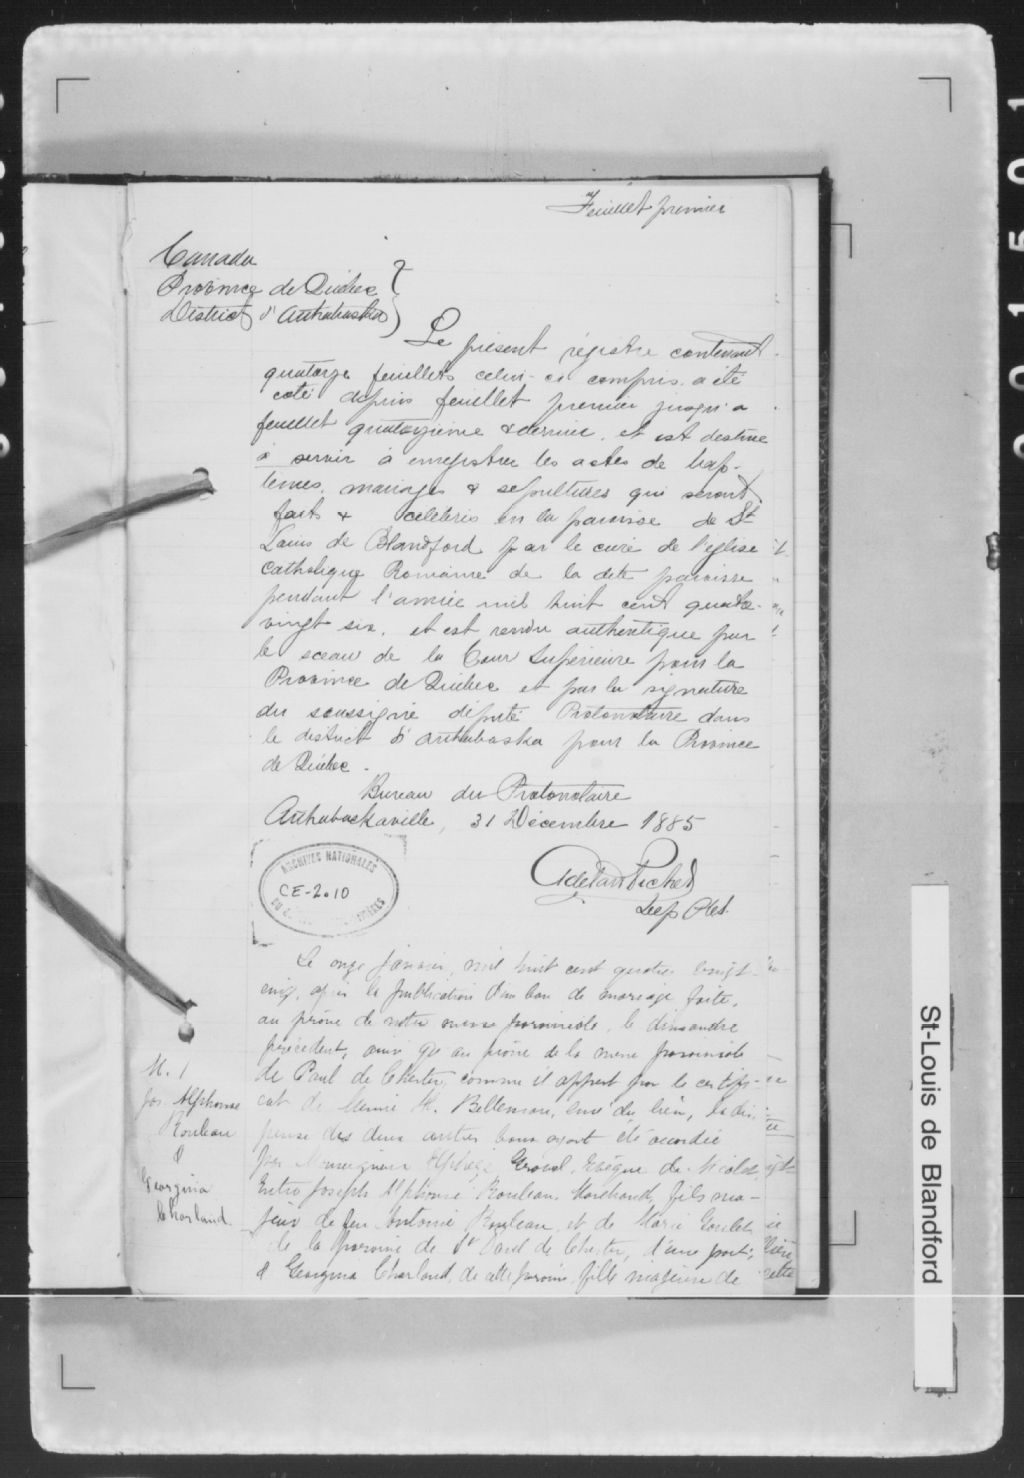 Feuillet premier
Canada
Province de Québec
District d'Arthabaska
Le présent régistre contenant
quatorze feuillets celui-ci compris a été
coté depuis feuillet premier jusqu'a
feuillet quatorzième & dernier, et est destiné
à servir à enregistrer les actes de bap-
têmes, mariages & sépultures qui seront
faits & célébrés en la paroisse de St
Louis de Blandford par le curé de l'église
Catholique Romaine de la dite paroisse
pendant l'année mil huit cent quatre-
vingt six, et est rendu authentique par
le sceau de la Cour Supérieure pour la
Province de Québec et par la signature
du soussigné député Protonotaire dans
le district d'Arthabaska pour la Province
de Québec.
Bureau du Protonotaire
Arthabaskaville, 31 Décembre 1885
Picher
Dep
ARCHIVES NATIONALES
CE-2.10
Le onze Janvier, mil huit cent quatre vingt
six, après la publication d'un ban de mariage faite,
au prône de notre messe paroissiale, le dimanche
précédent, ainsi qu'au prône de la messe paroissiale
de Paul de Chester, comme il appert par le certifi-
cat de M. Bellemare, curé du lieu, la dis-
pense des deux autres bans ayant été accordée
par Monseigneur Elphège Gravel, Evêque de Nicolet,
Entre Joseph Alphonse Rouleau, Marchand, fils ma-
jeur de feu Antoine Rouleau et de Marie Goulet
de la paroisse de St Paul de Chester, d'une part;
& Georgina Charland, de cette paroisse, fille majeure de
M. 1
Jos. Alphonse
Rouleau
&
Georgina
Charland
St-Louis de Blandford